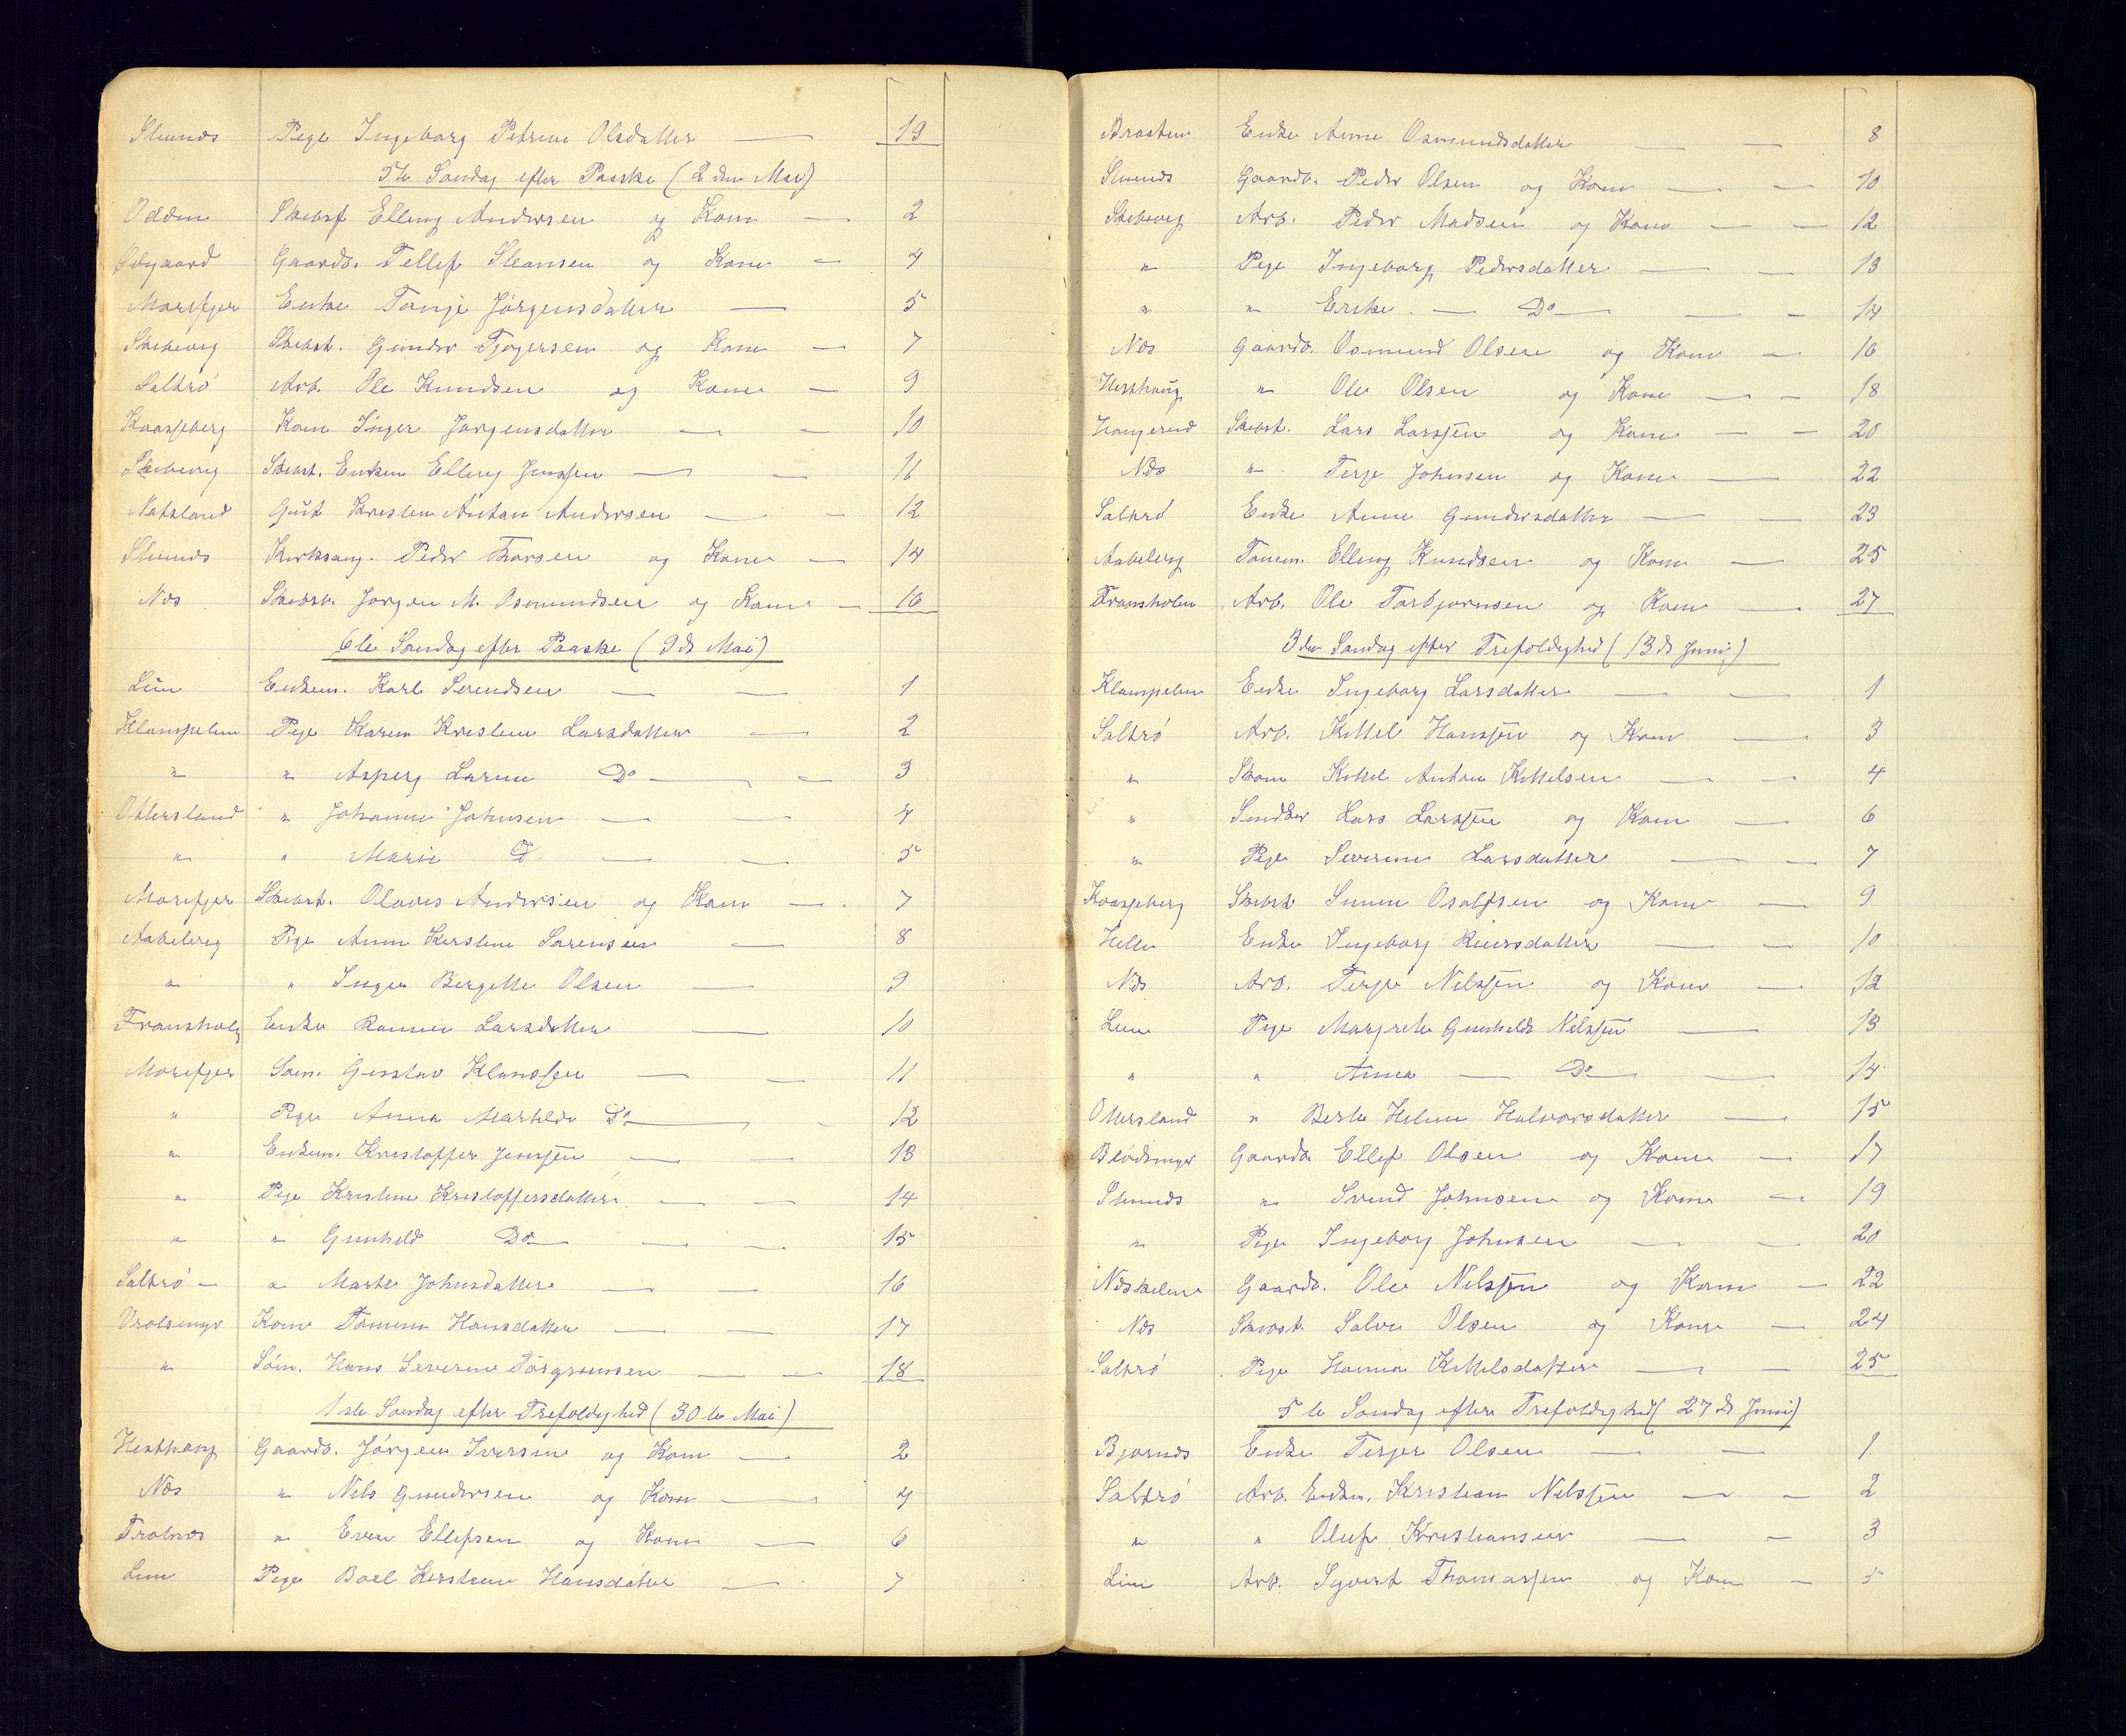 Stuenes Pige Ingeborg Petrine Olsdatter — 19
5te Søndag efter Paaske (2den Mai)
Odden Skibsf Elling Andersen og Kone — 2
Ødegaard Gaardb. Tellef Steansen og Kone — 4
Morefjer Enke Tonje Jørgensdatter — 5
Skibevig Skibst. Gunder Tjøgersen og Kone — 7
Saltrø Arb. Ole Knudsen og Kone — 9
Kaasjeberg Kone Inger Jørgensdatter — — 10
Skibevig Skibst. Enkem Elling Jenssen — — 11
Natvland Gut Kristen Antan Andersen — — 12
Stuenes Kirksang. Peder Thorsen og Kone — 14
Næs Skibst. Jørgen M. Osmundsen og Kone — 16
6te Søndag efter Paaske (9de Mai)
Lien Enkem. Karl Serendsen — — 1
Klampelien Pige Karen Kristine Larsdatter — 2
" " Asperg Larine Do — — 3
Ottersland " Johanne Johnsen — — 4
" " Marie Do — — 5
Morefjer Skibst. Olaves Andersen og Kone — 7
Aabelvig Pige Anne Kirstine Sørensen — 8
" " Inger Bergette Olsen — 9
Fransholm Enke Larsdatter — 10
Morefjer Søn. Gustav Klanssen — — 11
" Pige Anna Mathilde Do — — 12
" Enkem. Kristoffer Jenssen — — 13
" Pige Kristine Kristoffersdatter — — 14
" " Gunhild Do — — — 15
Saltrø — " Marte Johnsdatter — — 16
Vrolsmyr Kone Tomine Hansdatter — — 17
" Søn. Hans Severin Torgrimsen — — 18
1ste Søndag efter Trefoldighed (30te Mai)
Hesthaug Gaardb. Jörgen Iversen og Kone — 2
Næs " Nils Gundersen og Kone — 4
Trolnes " Even Ellefsen og Kone — 6
Lien Pige Boel Kirstine Hansdatter — 7
Braaten Enke Anne Osmundsdatter — — 8
Stuenes Gaardb. Peder Olsen og Kone — — 10
Skibevig Arb. Peder Madsen og Kone — — 12
" Pige Ingeborg Pedersdatter — — 13
" " Erike — Do — — 14
Næs Gaardb. Osmund Olsen og Kone — 16
Hesthaug " Ole Olsen og Kone — — 18
Haugerud Skibst. Lars Larssen og Kone — — 20
Næs " Terje Johnsen og Kone — 22
Saltrø Enke Anne Gundersdatter — — 23
Aabelvig Tømm. Elling Knudsen og Kone — 25
Fransholm Arb. Ole Torbjørnsen og Kone — 27
3die Søndag efter Trefoldighed (13de Juni)
Klampelien Enke Ingeborg Larsdatter — — 1
Saltrø Arb. Kittel Hanssen og Kone — 3
" Skom Kittel Anton Kittelsen — — 4
" Snedker Lars Larssen og Kone — 6
" Pige Severine Larsdatter — — 7
Kaasjeberg Skibst Osolfsen og Kone — 9
Helle Enke Ingeborg — — 10
Næs Arb. Terje Nilssen og Kone — 12
Lien Pige Margrete Gunhilde Nilssen — 13
" " Anna — Do — — 14
Ottersland " Berte Heline Halvorsdatter — 15
Blødsmyr Gaardb. Ellef Olsen og Kone — 17
Stuenes " Svend Johnsen og Kone — 19
" Pige Ingeborg Johnsen — — 20
Næskilen Gaardb. Ole Nilssen og Kone — 22
Næs Skibst. Salve Olsen og Kone — 24
Saltrø Pige Hanna Kittelsdatter — — 25
5te Søndag efter Trefoldighed (27de Juni)
Bjørnes Enke Terjer Olsen — — 1
Saltrø Arb. Enkem. Kristian Nilssen — — 2
" " Oluf Kristiansen — — 3
Lien Arb. Syvert Thomassen og Kone — 5